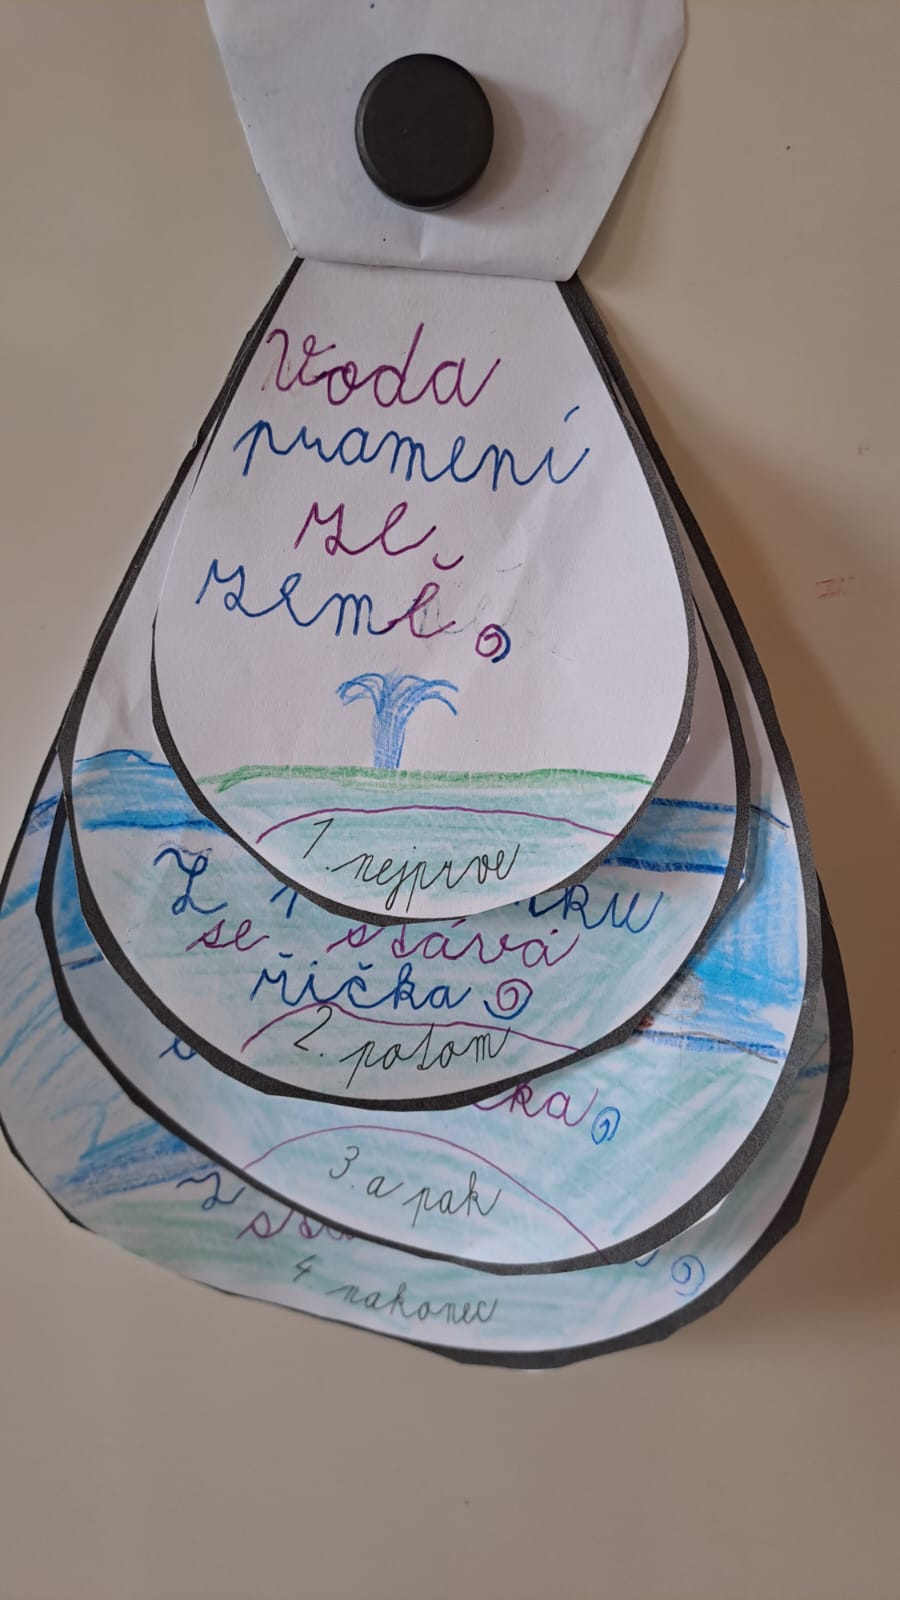 Voda
pramení
ze
země.
1. nejprve
Z
se stává
řička.
2. potom
3. a pak
Z
4. nakonec